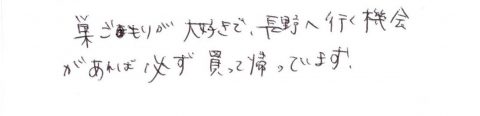 巣ごもりが大好きで、長野へ行く機会
があれば必ず買って帰っています。